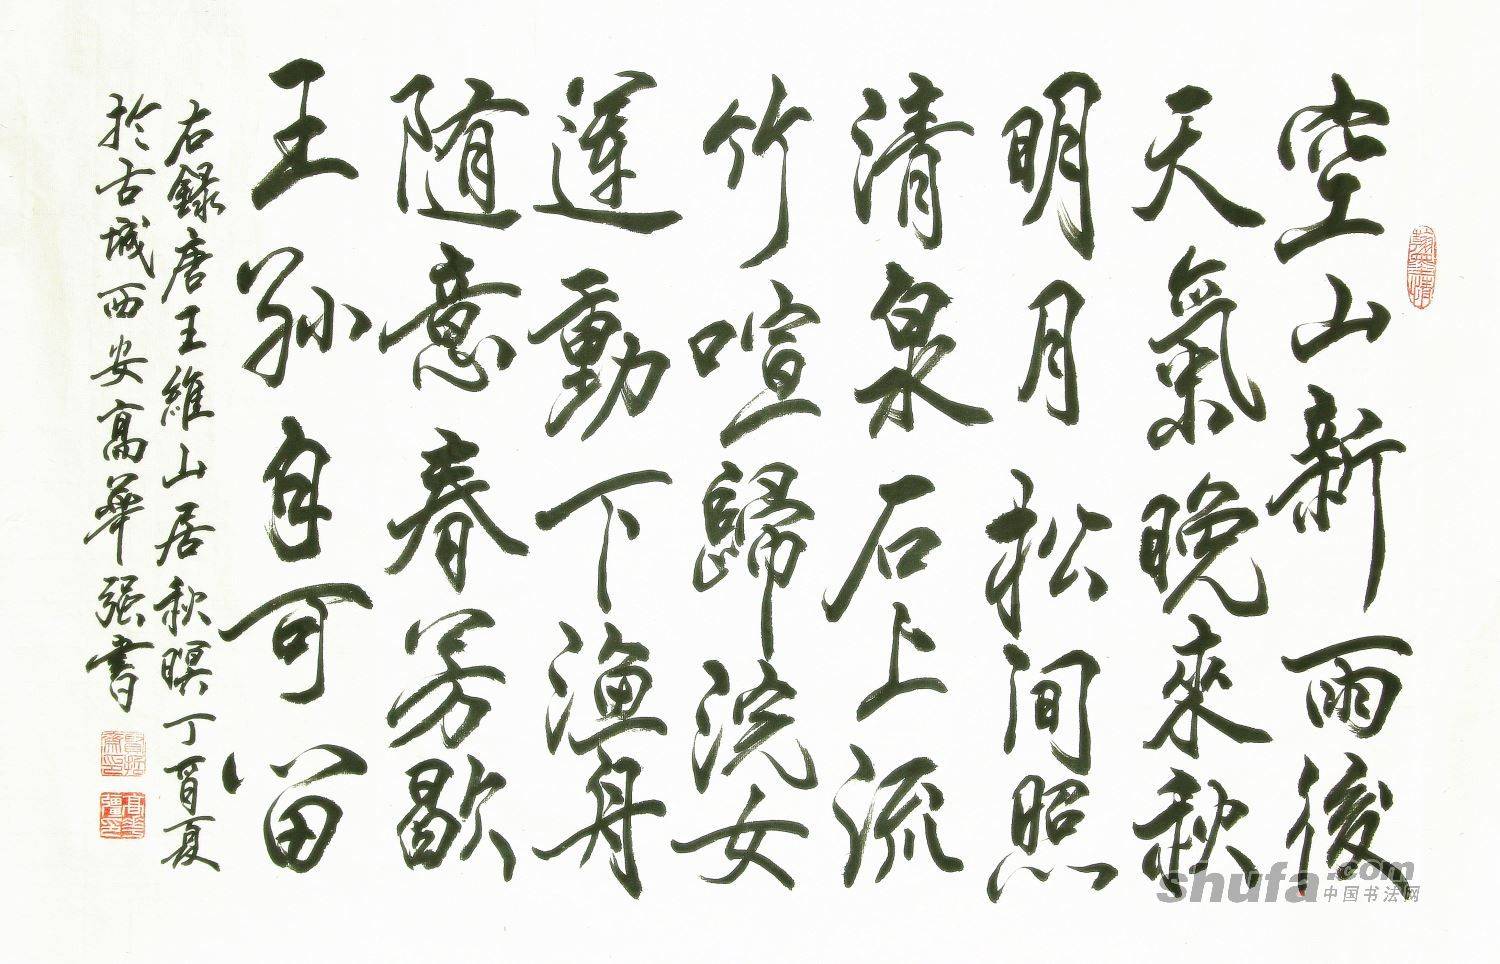 空山新雨後
天氣晚來秋
明月松间照
清泉石上流
竹喧歸浣女
蓮動下渔舟
随意春芳歇
王孙自可留
右録唐王維山居秋暝丁酉夏
於古城西安高華强書
shufa.com
中国书法网